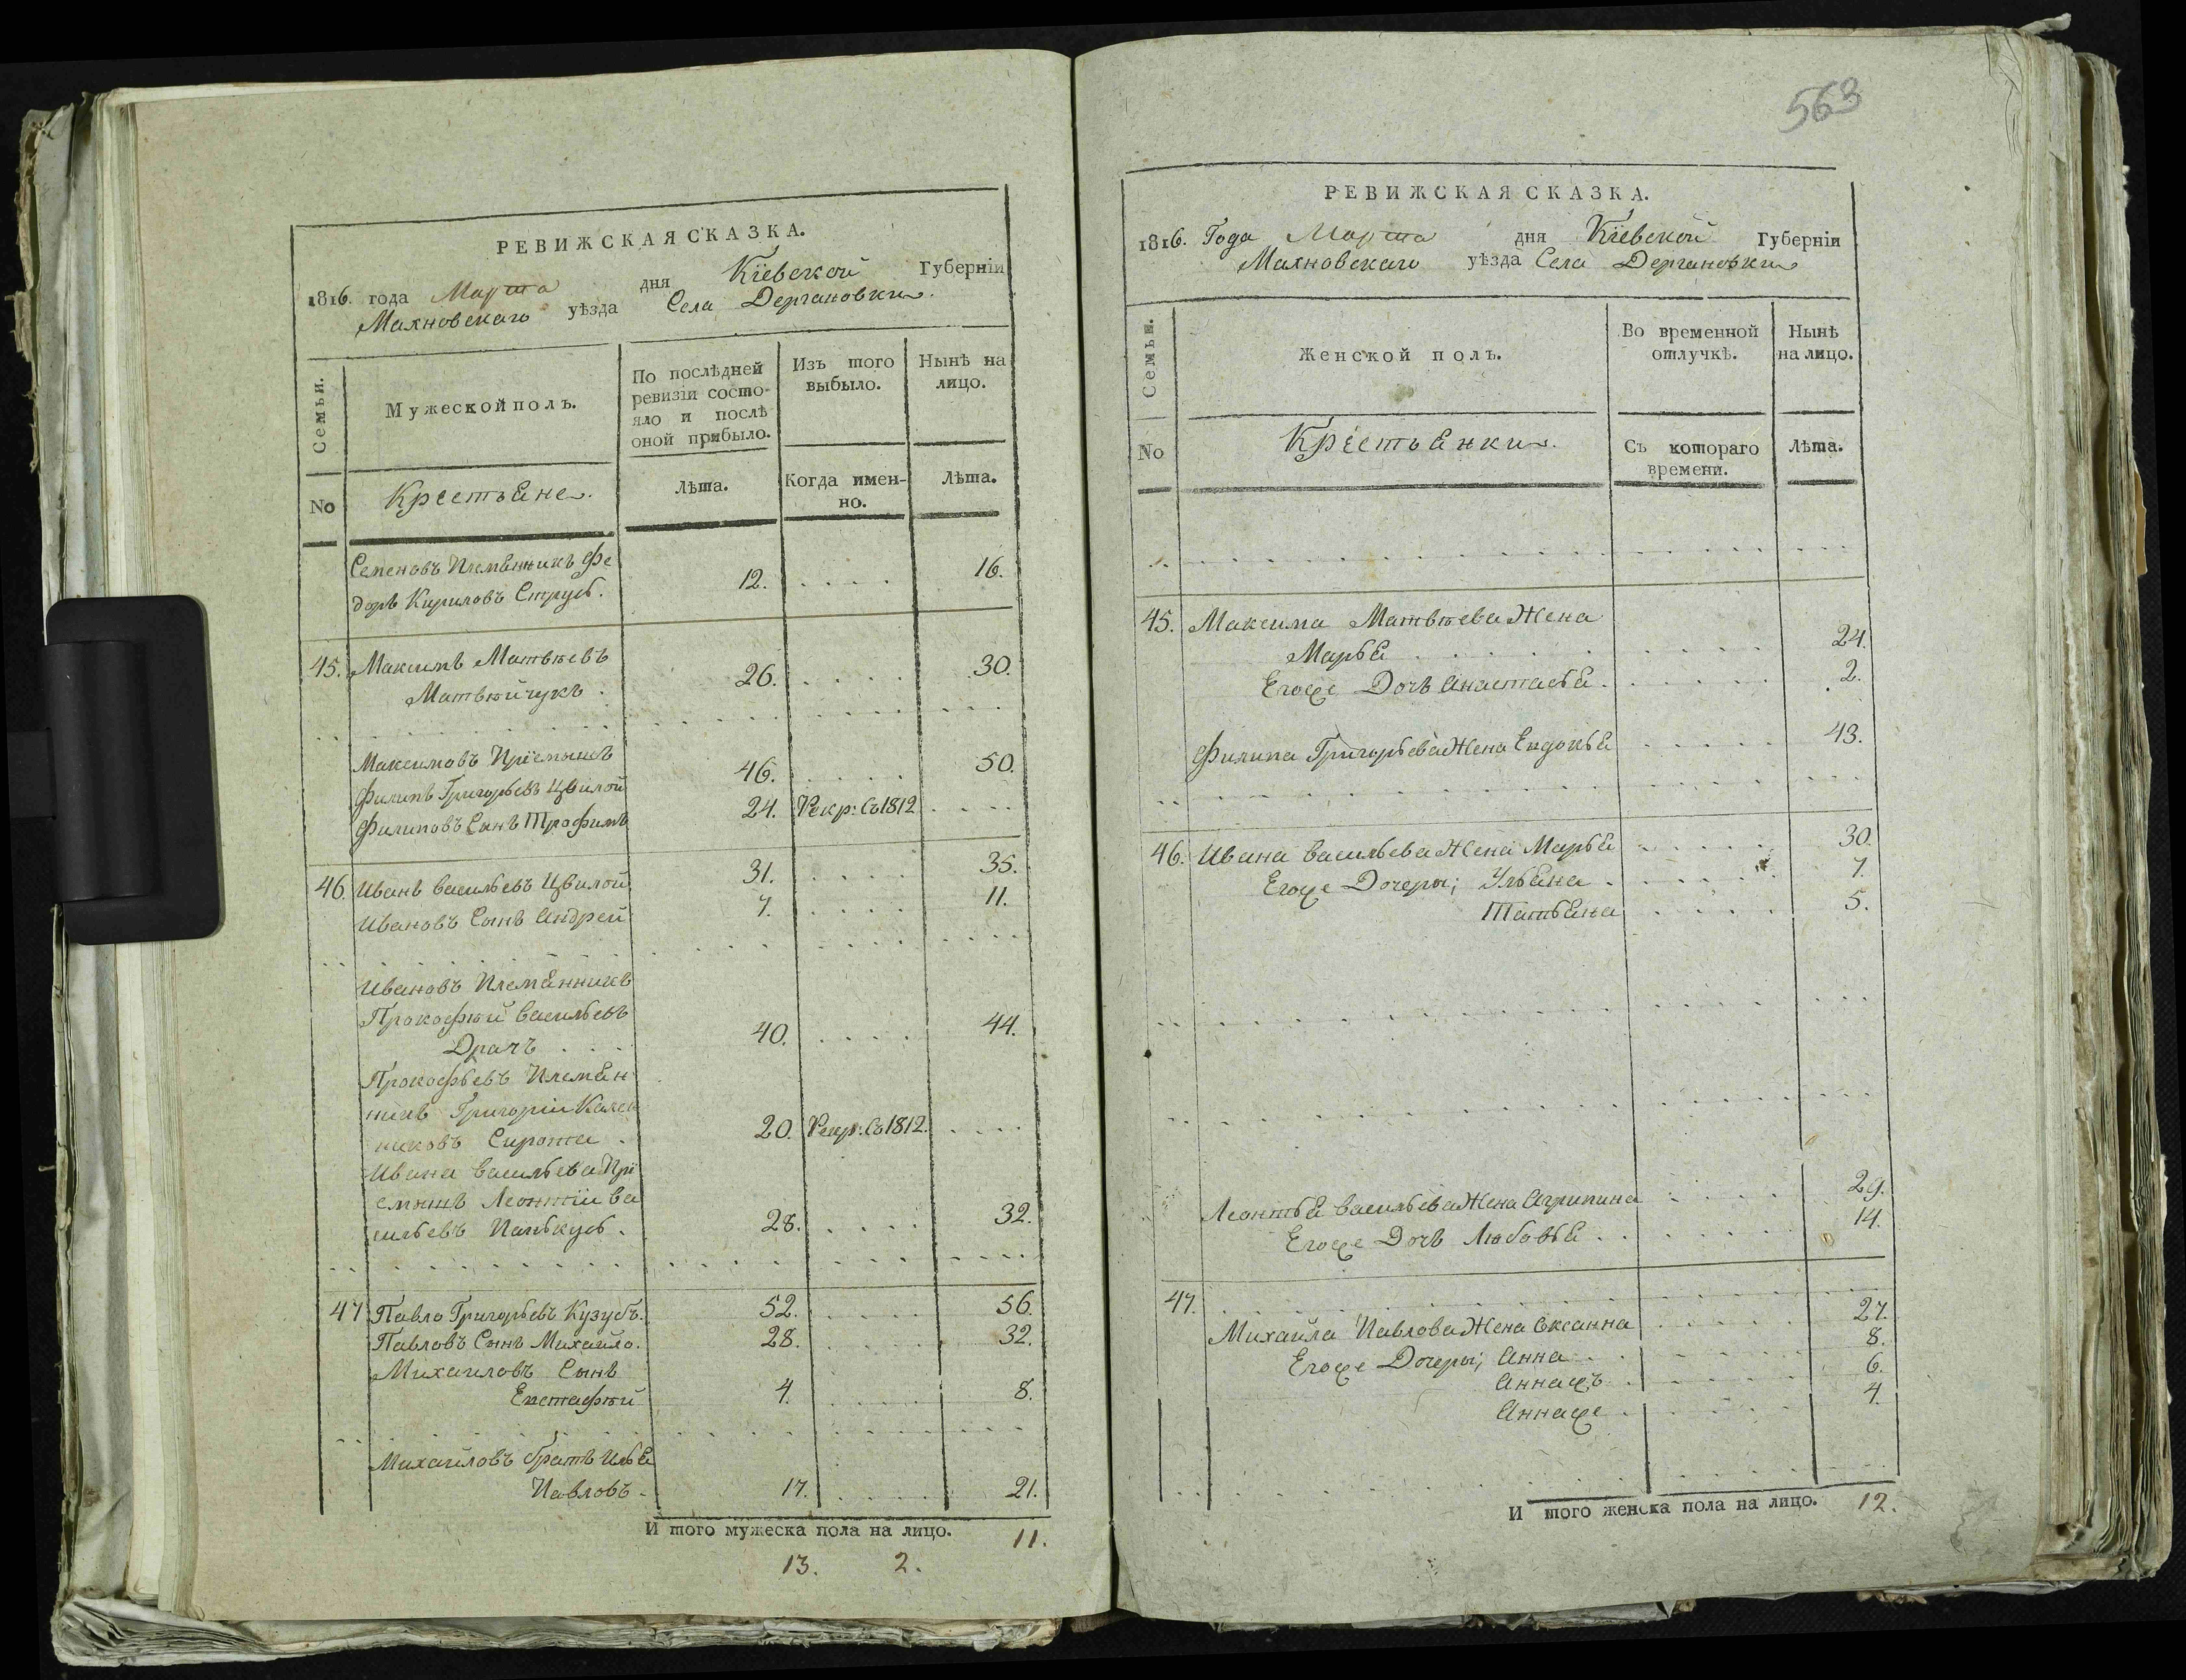 РЕВИЖСКАЯ СКАЗКА.
1816. года Марта дня Кіевской Губерніи
Махновскаго уѣзда Села Дергановки.
Семьи.
Мужеской полъ.
По послѣдней ревизіи состо-
яло и послѣ
оной прибыло.
Изъ того
выбыло.
Нынѣ на
лицо.
No
Крестьяне.
Лѣта.
Когда имен-
но.
Лѣта.
Семеновъ племянникъ Фе
доръ Кириловъ Струсъ. 12. 16.
45. Максимъ Матвѣевъ
Матвѣйчукъ. 26. 30.
Максимовъ Пріемышъ
Филипъ Григорьевъ Цвилой 46. 50.
Филиповъ Сынъ Трофимъ 24. Рекр: съ 1812
46. Иванъ Васильевъ Цвилой 31. 35.
Ивановъ Сынъ Андрей 7. 11.
Ивановъ Племянникъ
Прокофій Васильевъ
Драчъ 40. 44.
Прокофьевъ Племян
никъ Григорій Калени
никовъ Сирота 20. Рекр: съ 1812.
Ивана Васильева Прі
емышъ Леонтій Ва
сильевъ 28. 32.
47 Павло Григорьевъ Кузубъ. 52. 56.
Павловъ Сынъ Михайло. 28. 32.
Михайловъ Сынъ
Евстафій 4. 8.
Михайловъ братъ Илья
Павловъ 17. 21.
И того мужеска пола на лицо. 11.
13. 2.
563
РЕВИЖСКАЯ СКАЗКА.
1816. Года Марта дня Кіевской Губерніи
Махновскаго уѣзда Села Дергановки
Семьи.
Женской полъ.
Во временной
отлучкѣ.
Нынѣ
на лицо.
No
Крестьянки.
Съ котораго
времени.
Лѣта.
45. Максима Матвѣева Жена
Марья 24.
Егоже Дочь Анастасья 2.
Филипа Григорьева Жена Евдокья 43.
46. Ивана Васильева Жена Марья 30.
Егоже Дочери; Ульяна 7.
Татьяна 5.
Леонтья Васильева Жена Агрипина 29.
Егоже Дочь Любовья 14.
47.
Михайла Павлова Жена Оксанна 27.
Егоже Дочери; Анна 8.
Аннажъ 6.
Аннаже 4.
И того женска пола на лицо. 12.